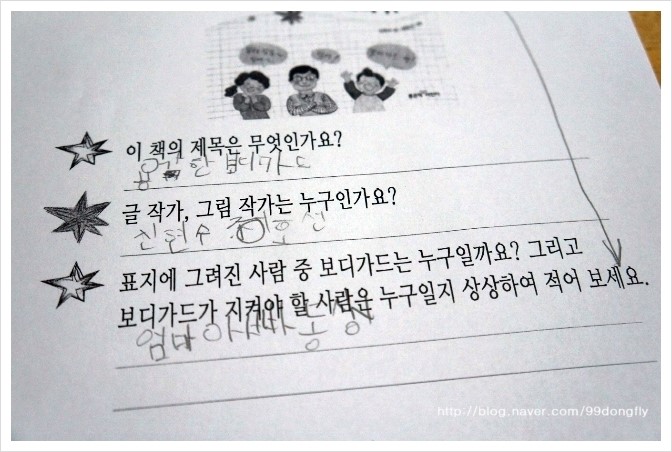 이 책의 제목은 무엇인가요?
용감한 보디가드
글 작가, 그림 작가는 누구인가요?
신현수 호선
표지에 그려진 사람 중 보디가드는 누구일까요? 그리고
보디가드가 지켜야 할 사람은 누구일지 상상하여 적어 보세요.
엄마 아빠 동생
http://blog.naver.com/99dongfly